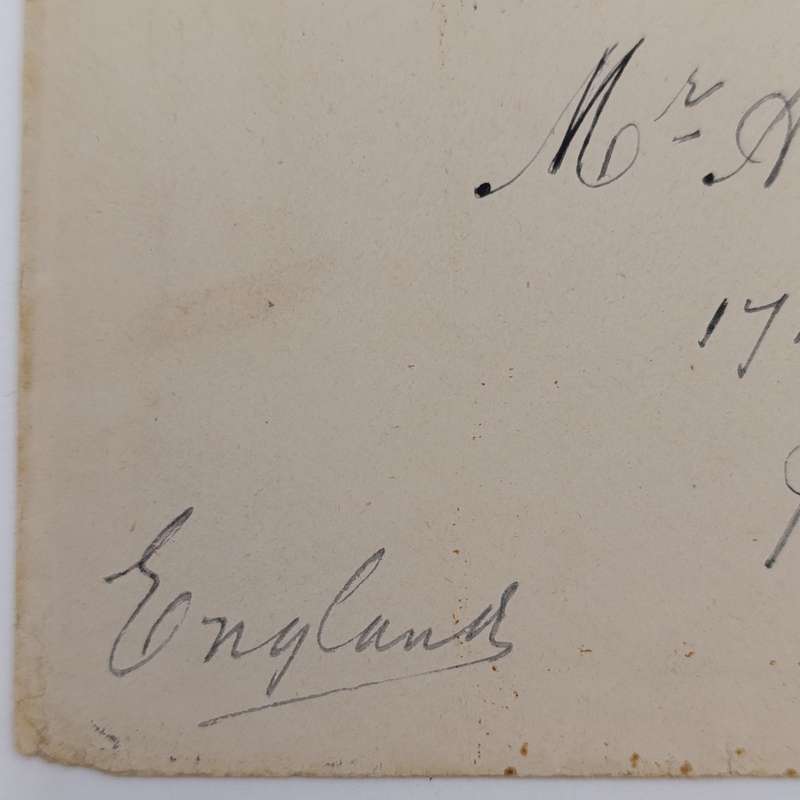 Mr A
17
England